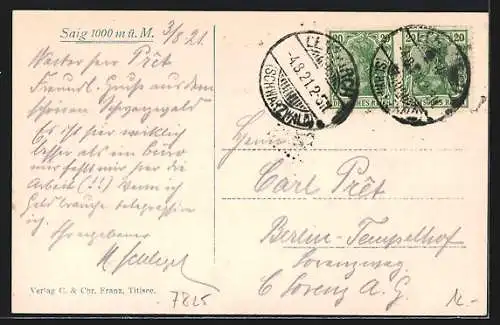 Saig 1000 m ü. M. 3/8 21.
Werter Herr Prêt
Freundl. Gruss aus dem
schönen Schwarzwald
Es ist hier wirklich
besser als im Büro
nur fehlt mir hier die
Arbeit (!!) Wenn ich
Geld brauche telegraphiere
ich.
Ihr ergebener
Verlag C. & Chr. Franz, Titisee.
7825
-4.8.21.2-5N
(SCHWARZWALD)
20 20
20 20
DEUTSCHES REICH
DEUTSCHES REICH
Herrn
Carl Prêt
Berlin-Tempelhof
Lorenzweg
C Lorenz A. G.